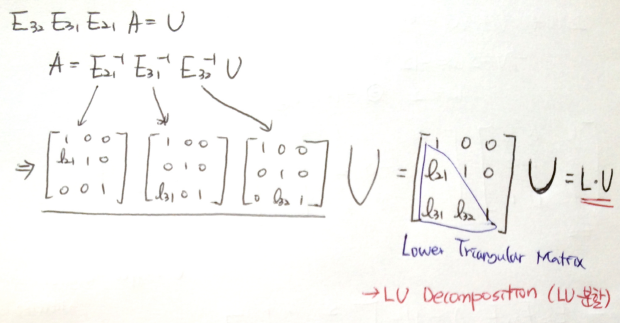 E₃₂ E₃₁ E₂₁ A = U
A = E₂₁⁻¹ E₃₁⁻¹ E₃₂⁻¹ U
⇒ [1 0 0; l₂₁ 1 0; 0 0 1] [1 0 0; 0 1 0; l₃₁ 0 1] [1 0 0; 0 1 0; 0 l₃₂ 1] U = [1 0 0; l₂₁ 1 0; l₃₁ l₃₂ 1] U = L·U
Lower Triangular Matrix
→ LU Decomposition (LU 분할)